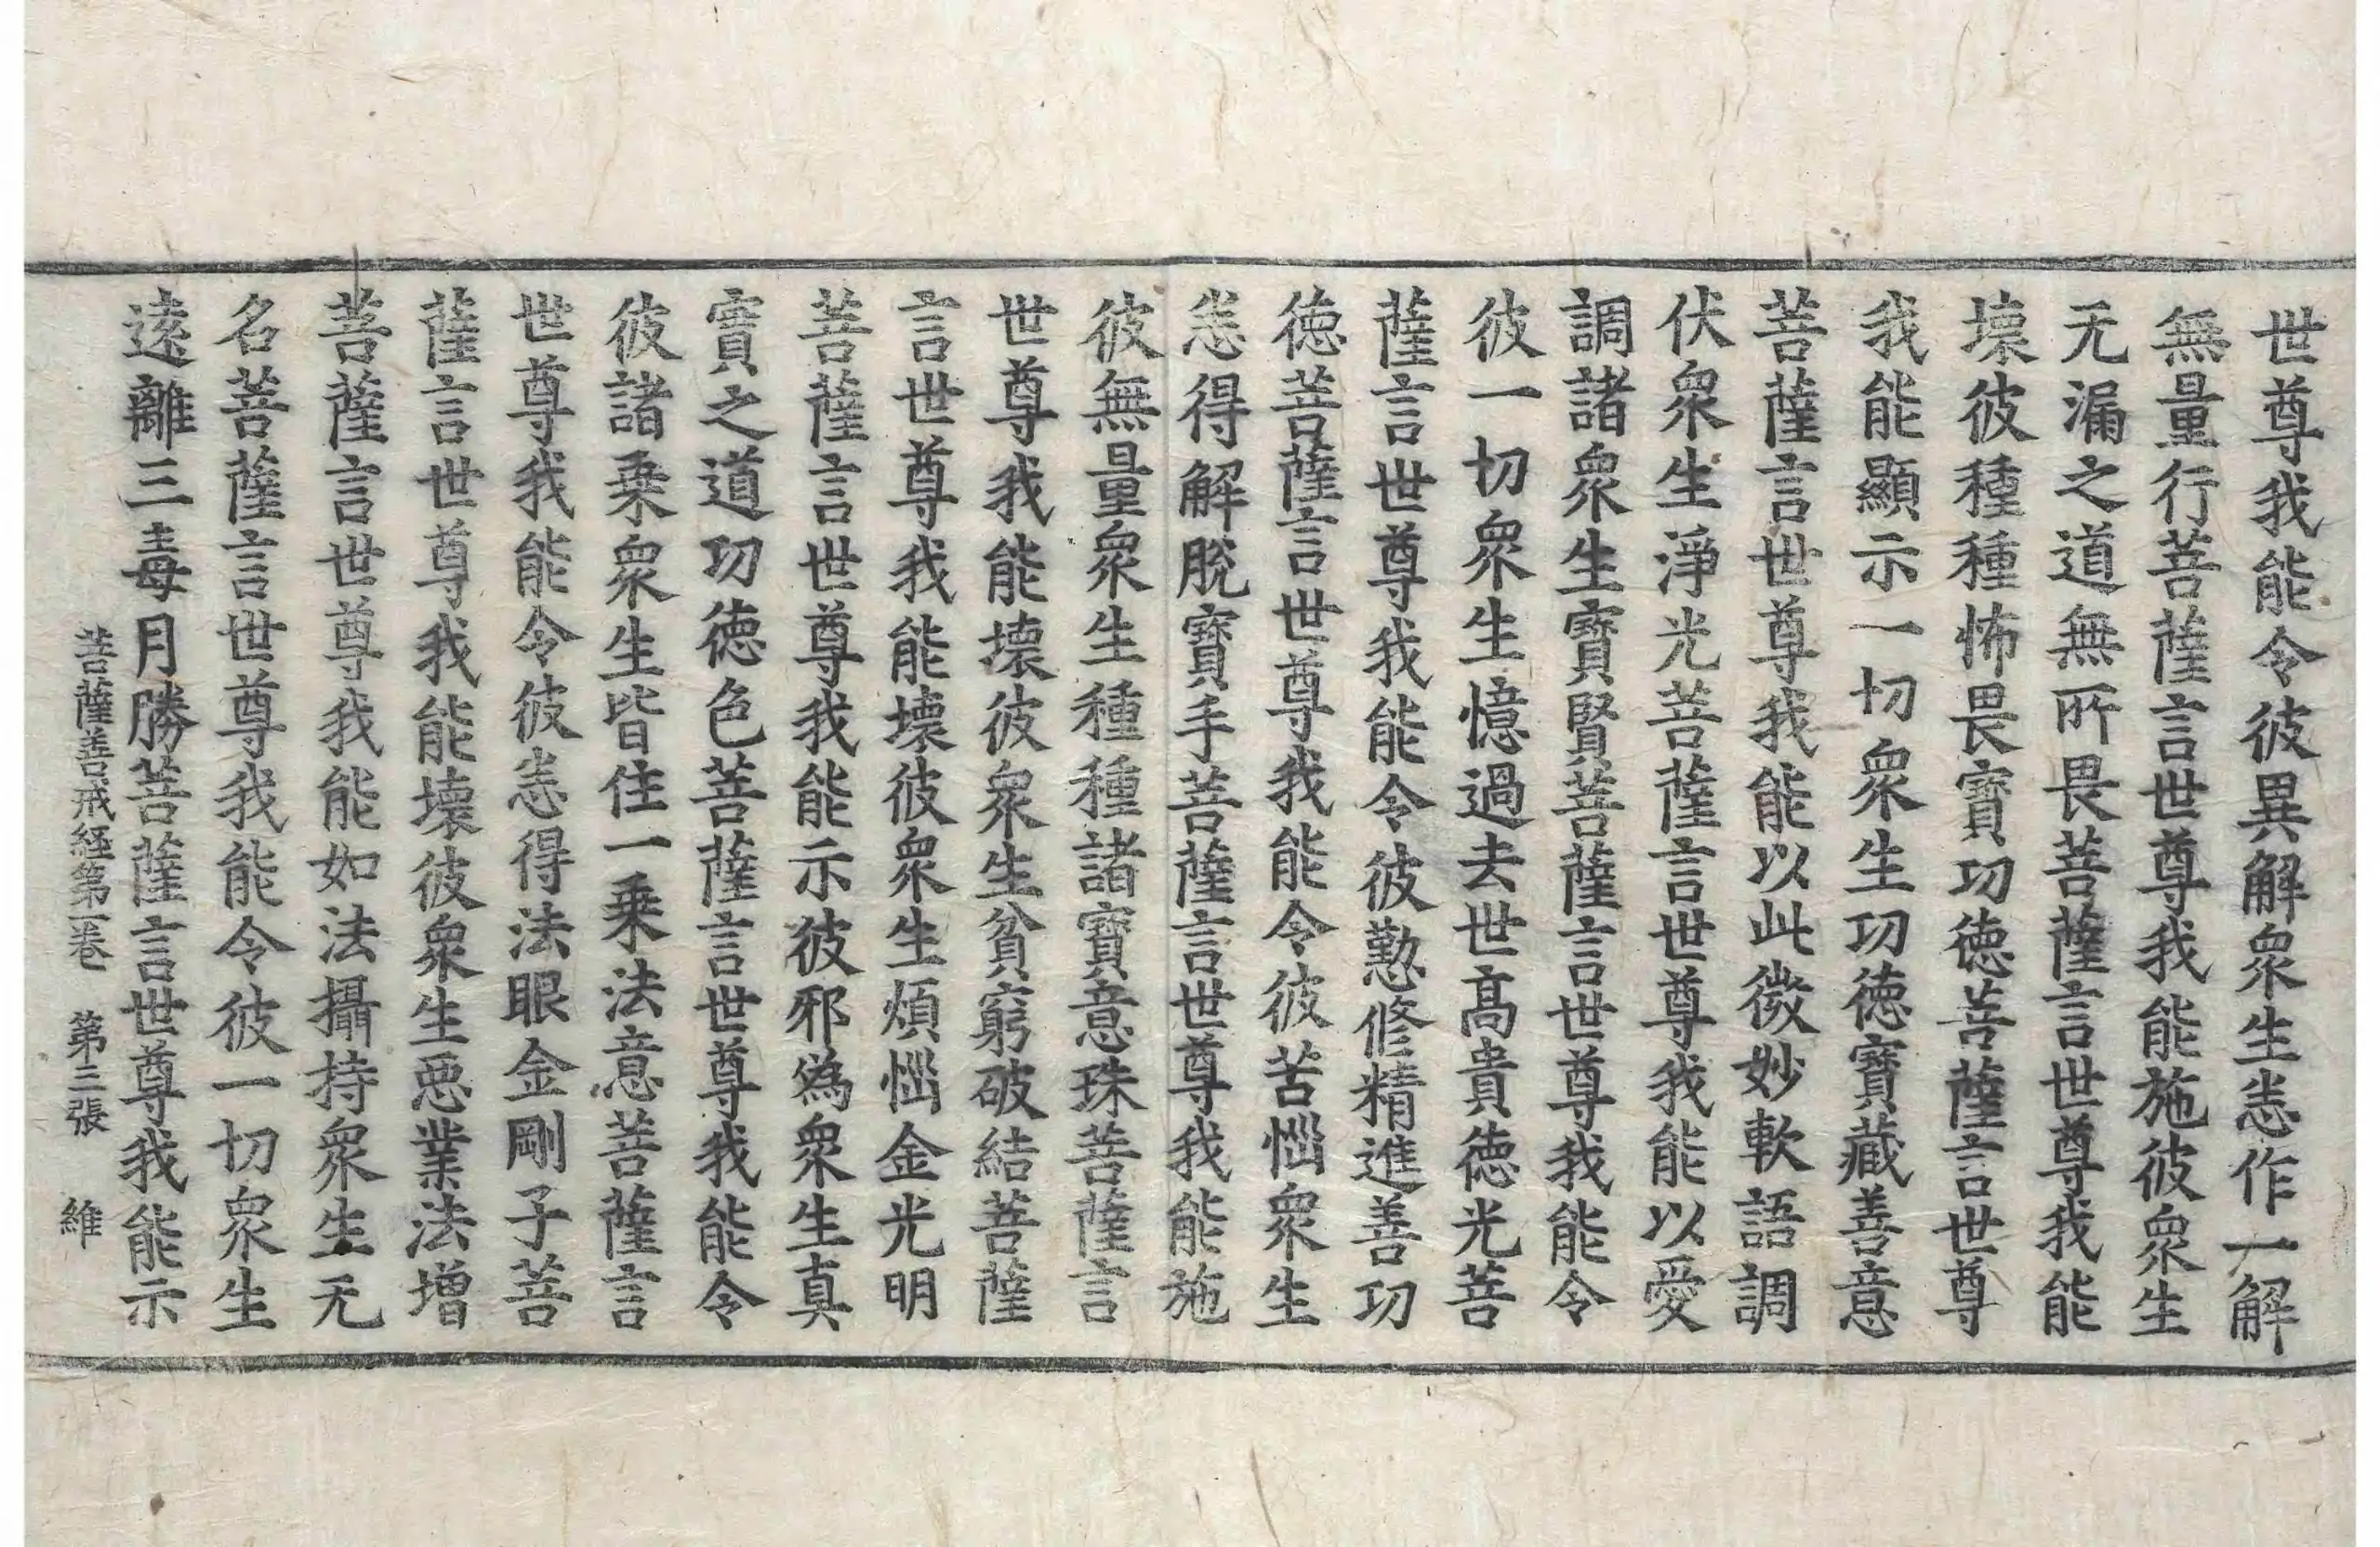 世尊我能令彼異解衆生悉作一解
無量行菩薩言世尊我能施彼衆生
无漏之道無所畏菩薩言世尊我能
壞彼種種怖畏寶功德菩薩言世尊
我能顯示一切衆生功德寶藏善意
菩薩言世尊我能以此微妙軟語調
伏衆生淨光菩薩言世尊我能以愛
調諸衆生寶賢菩薩言世尊我能令
彼一切衆生憶過去世高貴德光菩
薩言世尊我能令彼懃修精進善功
德菩薩言世尊我能令彼苦惱衆生
悉得解脫寶手菩薩言世尊我能施
彼無量衆生種種諸寶意珠菩薩言
世尊我能壞彼衆生貧窮破結菩薩
言世尊我能壞彼衆生煩惱金光明
菩薩言世尊我能示彼邪為衆生真
實之道功德色菩薩言世尊我能令
彼諸乘衆生皆住一乘法意菩薩言
世尊我能令彼悉得法眼金剛子菩
薩言世尊我能壞彼衆生惡業法增
菩薩言世尊我能如法攝持衆生无
名菩薩言世尊我能令彼一切衆生
遠離三毒月勝菩薩言世尊我能示
菩薩善戒經第一卷 第三張 維